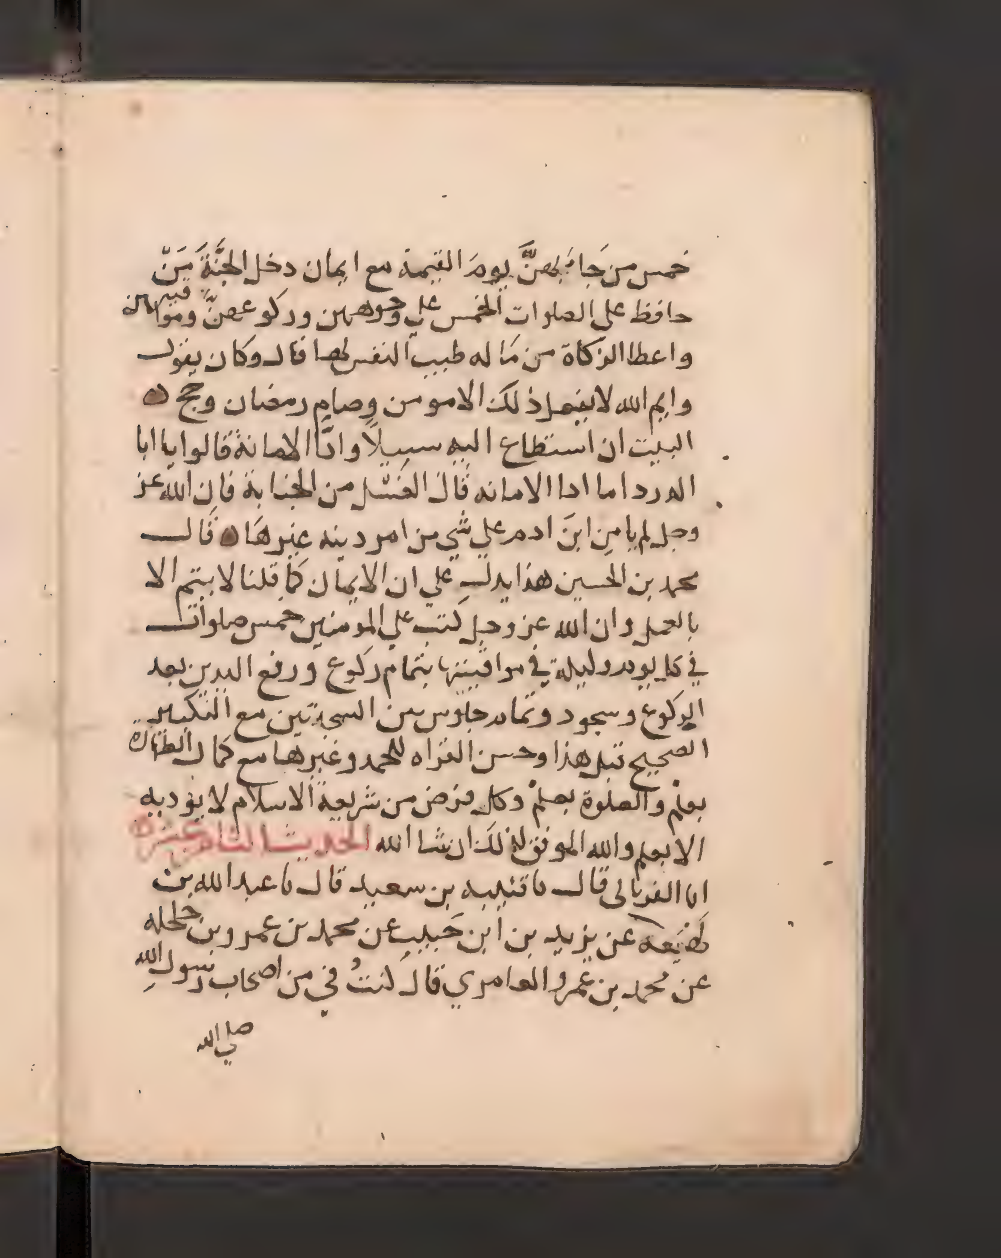 خمس من جَاءَ بهنَّ يومَ القيمة مع ايمان دخل الجنَّةَ مَنْ
حافظ على الصلوات الخمس على وضوهن وركوعهنَّ ومواقيتهن
واعطا الزكاة من مَاله طيب النفس لها قال وكان يقول
وايم الله لا يفعل ذلك الا مومن وصام رمضان وحج
البيت ان استطاع اليه سبيلًا وادَّا الامانة قالوا يا ابا
الدردا ما ادا الامانه قال الغسْل من الجنابة فان الله عز
وجل لم يامن ابنَ ادم على شي من امر دينه غيرهَا قال
محمد بن الحسين هذا يدل علي ان الايمان كما قلنا لا يتم الا
بالعمل وان الله عز وجل كتب على المومنين خمس صلوات
في كل يوم وليلة في مواقيتها بتمام ركوع ورفع اليدين بعد
الركوع وسجود وتمام جلوس بين السجدتين مع التكبير
الصحيح قبل هذا وحسن القراه للحمد وغيرها مع كمال الطهارة
بعلم والصلوة بعلم وكل فرض من شريعة الاسلام لا يؤديه
الا بعلم والله الموفق لذلك ان شا الله الحديث الثامن عشر
انا الفريابي قال نا قتيبه بن سعيد قال نا عبد الله بن
لهَيعه عن يزيد بن ابي حَبيب عن محمد بن عمرو بن حلحله
عن محمد بن عمرو العامري قال كنتُ في من اصحاب رسول الله
صلى الله